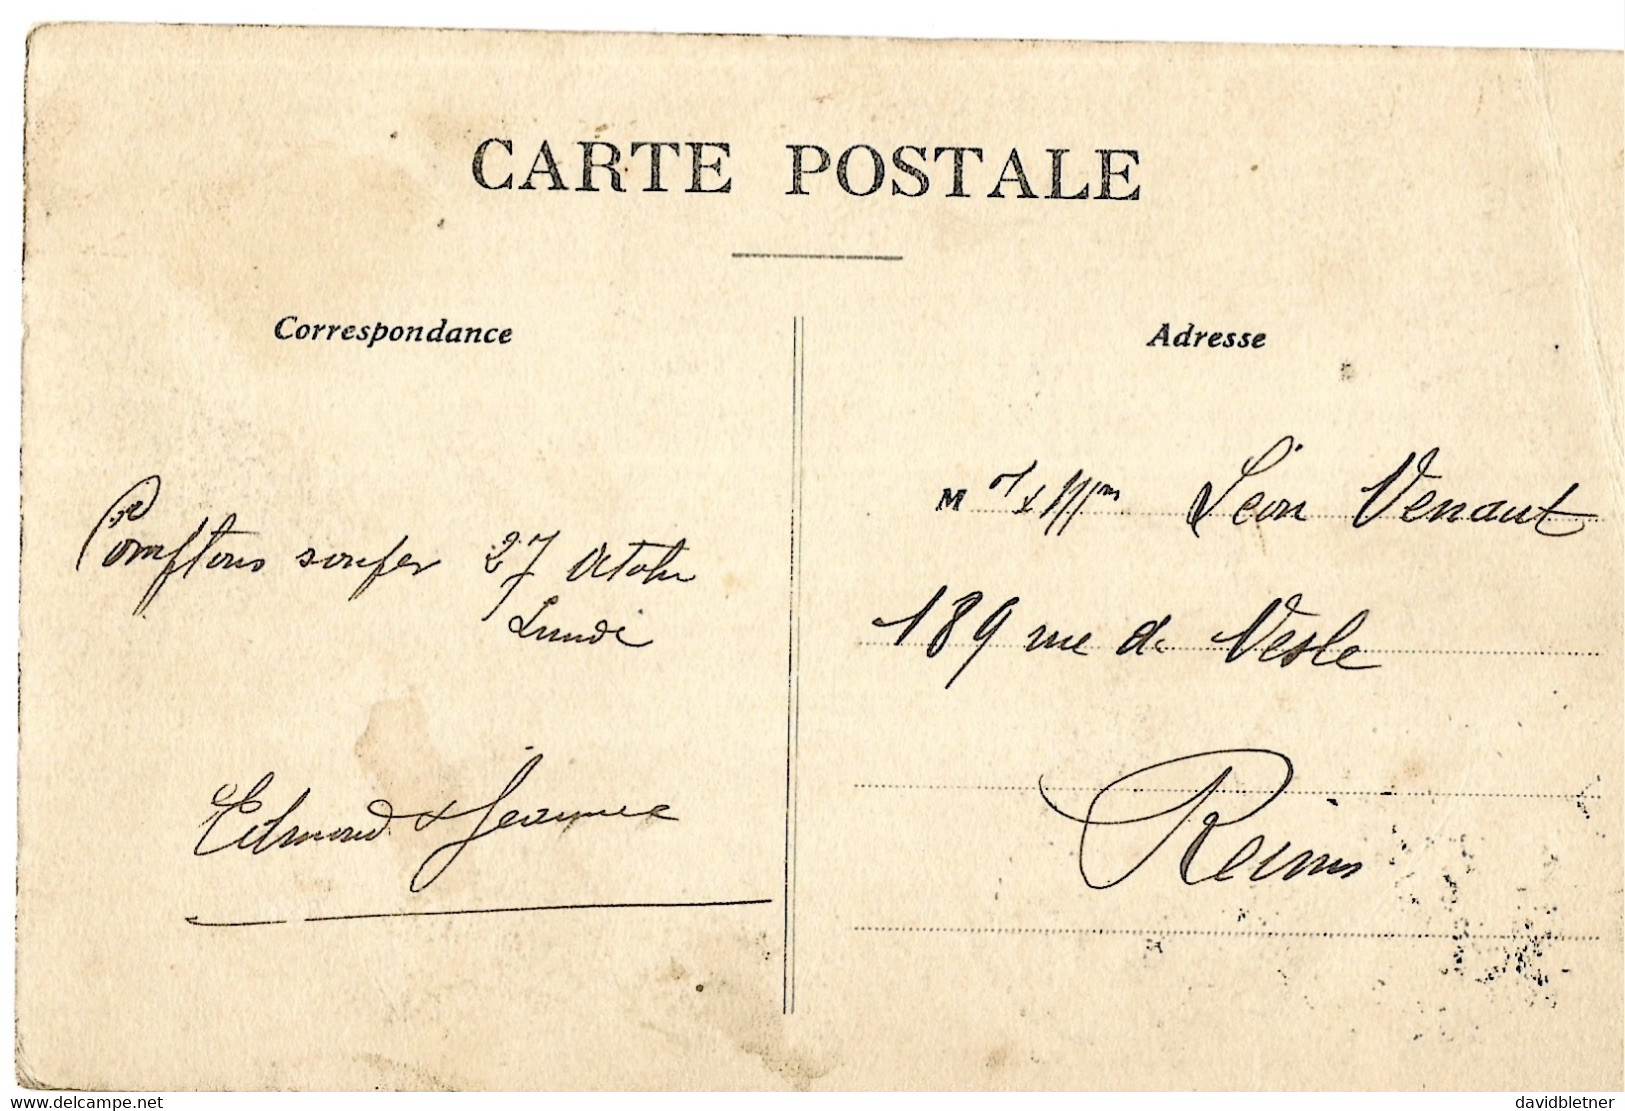 CARTE POSTALE
Correspondance
Adresse
Comptons souper 27 Octobre
Lundi
Edmond & Jeanne
Mr & Mme Léon Venaut
189 rue de Vesle
Reims
www.delcampe.net
davidbletner